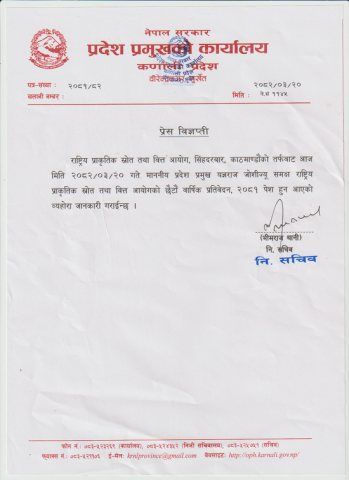 नेपाल सरकार
प्रदेश प्रमुखको कार्यालय
कर्णाली प्रदेश
वीरेन्द्रनगर, सुर्खेत
पत्र-संख्या : २०८१/८२
चलानी नम्बर :
२०८२/०३/२०
मिति : ने.सं ११४५
प्रेस विज्ञप्ती
राष्ट्रिय प्राकृतिक स्रोत तथा वित्त आयोग, सिंहदरबार, काठमाण्डौको तर्फवाट आज
मिति २०८२/०३/२० गते माननीय प्रदेश प्रमुख यज्ञराज जोशीज्यू समक्ष राष्ट्रिय
प्राकृतिक स्रोत तथा वित्त आयोगको छैटौँ वार्षिक प्रतिवेदन, २०८१ पेश हुन आएको
व्यहोरा जानकारी गराईन्छ ।
(भीमराज थानी)
नि. सचिव
नि. सचिव
फोन नं.: ०८३-५२३२६९ (कार्यालय), (निजी सचिवालय), (सचिव)
फ्याक्स नं.: इ-मेल: krnlprovince@gmail.com वेवसाइट: http://oph.karnali.gov.np/